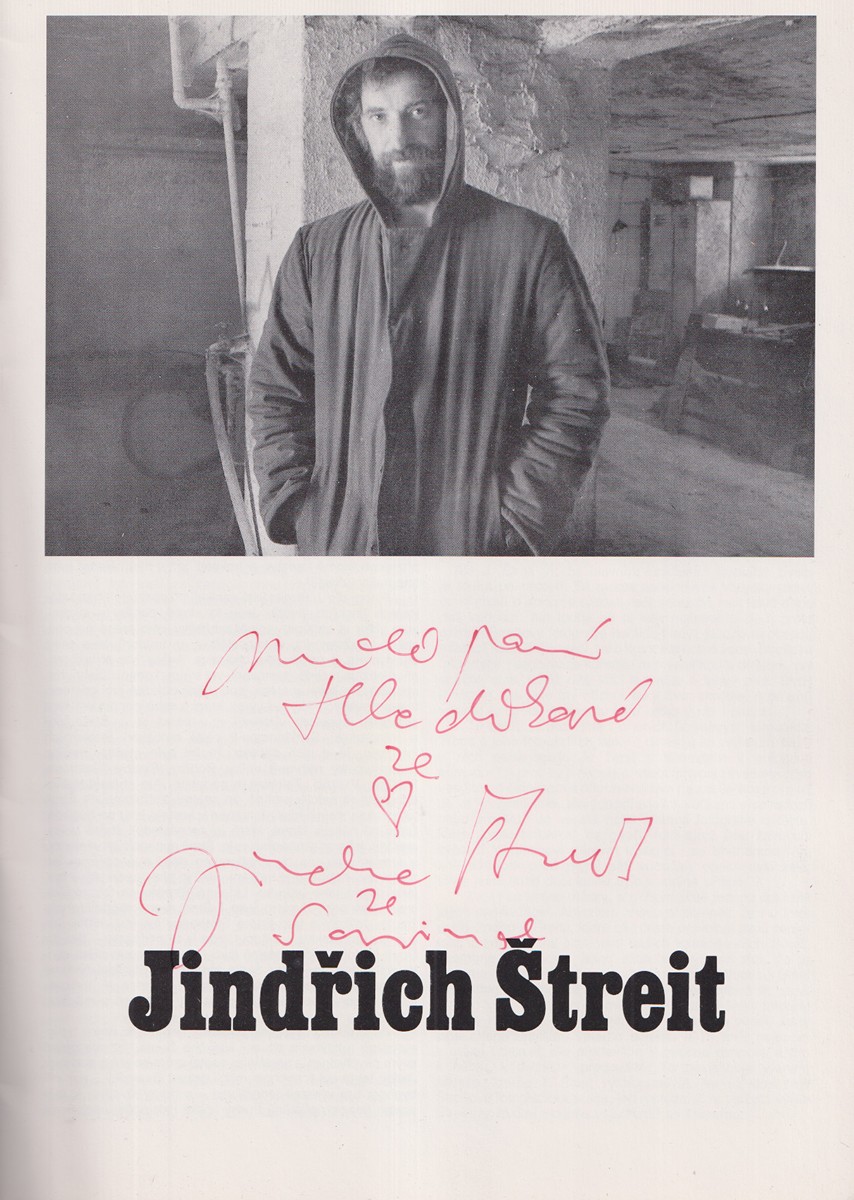 paní
Hledíkové
ze
Jindra Štreit
ze
Sovince
Jindřich Štreit